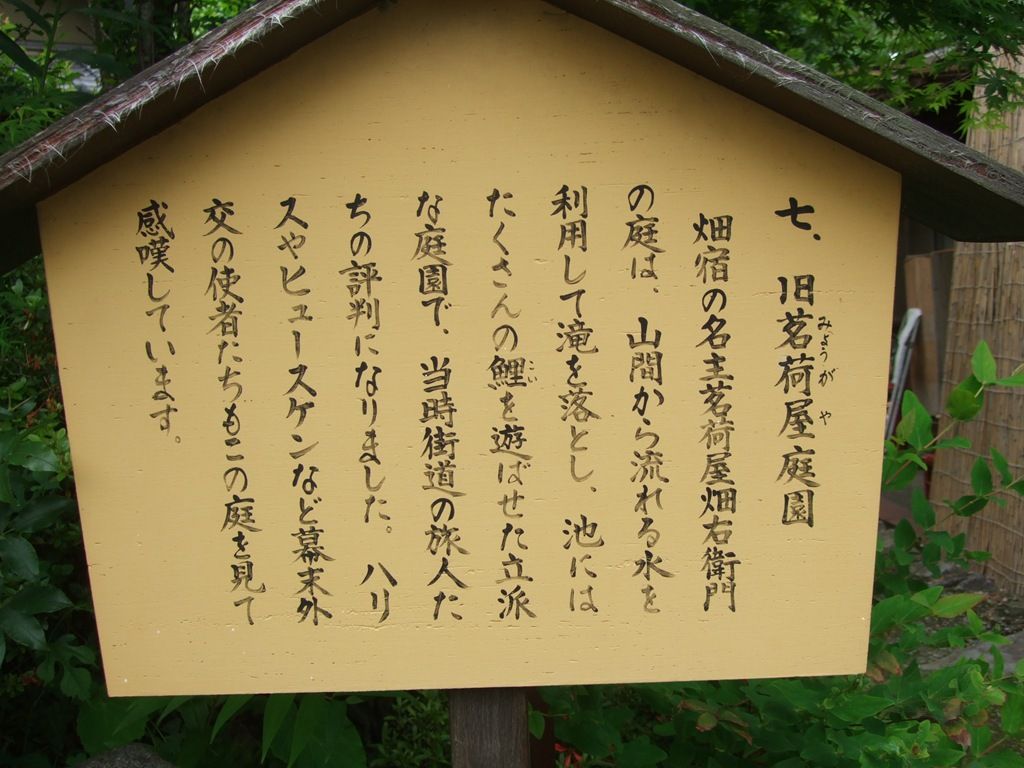 七、旧茗荷屋庭園
みょうが や
畑宿の名主茗荷屋畑右衛門
の庭は、山間から流れる水を
利用して滝を落とし、池には
たくさんの鯉を遊ばせた立派
こい
な庭園で、当時街道の旅人た
ちの評判になりました。ハリ
スやヒュースケンなど幕末外
交の使者たちもこの庭を見て
感嘆しています。